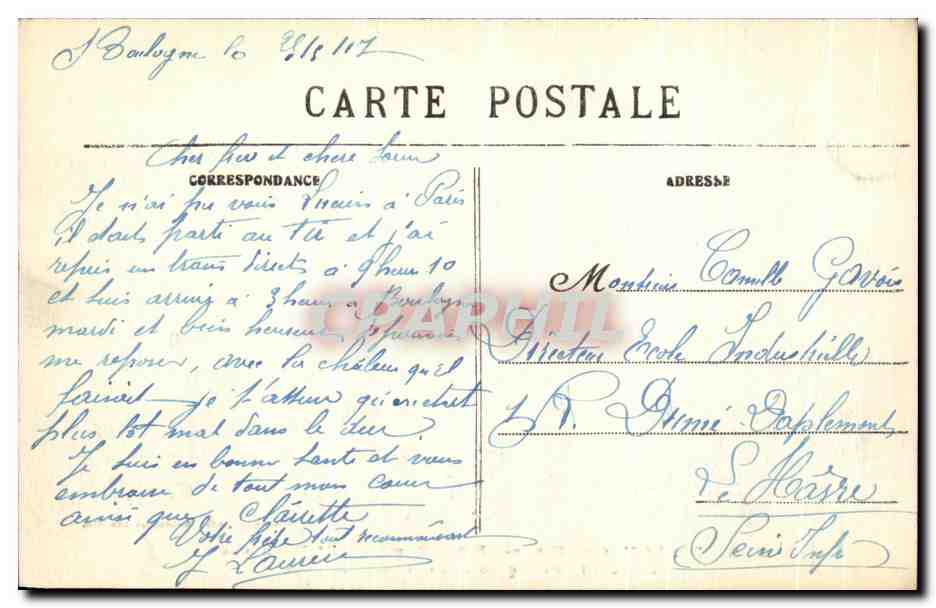 Boulogne le
CARTE POSTALE
Cher frère et chere soeur
CORRESPONDANCE
ADRESSE
Je n'ai pu vous Lucien à Paris
il étais parti au Tir et j'ai
repris un train directe à 9 heur 10
et suis arrivé à 3 heur à Boulogne
mardi et bien heureux
me reposer, avec la châleur qu'il
faisait je t'assure qu'on etait
plus tot mal dans le dur.
Je suis en bonne sante et vous
embrasse de tout mon coeur
ainsi que Clairette
Votre frère tout reconnaissant
Monsieur Camille Gavois
Directeur Ecole Industrielle
R. Demé Daplemont
Le Hâvre
Seine Infr
CPAPHIL